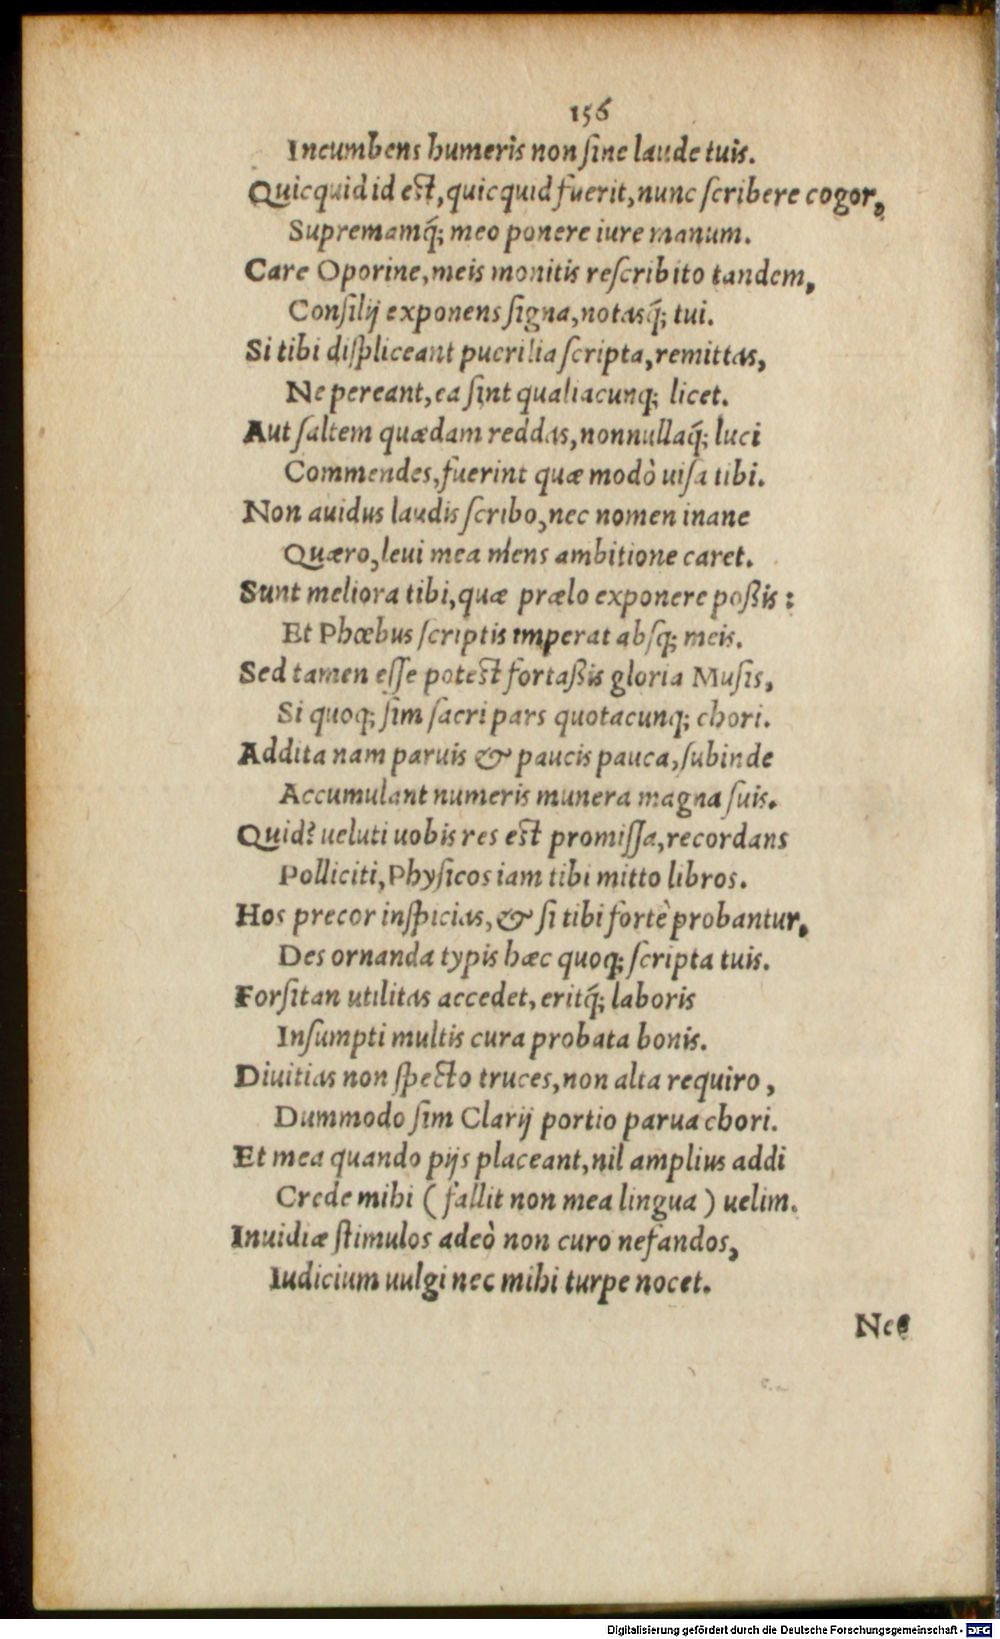 156
Incumbens humeris non ſine laude tuis.
Quicquid id eſt, quicquid fuerit, nunc ſcribere cogor,
Supremamq́; meo ponere iure manum.
Care Oporine, meis monitis reſcribito tandem,
Conſilij exponens ſigna, notasq́; tui.
Si tibi diſpliceant puerilia ſcripta, remittas,
Ne pereant, ea ſint qualiacunq; licet.
Aut ſaltem quædam reddas, nonnullaq́; luci
Commendes, fuerint quæ modò uiſa tibi.
Non auidus laudis ſcribo, nec nomen inane
Quæro, leui mea mens ambitione caret.
Sunt meliora tibi, quæ prælo exponere poßis:
Et Phœbus ſcriptis imperat abſq; meis.
Sed tamen eſſe poteſt fortaßis gloria Muſis,
Si quoq; ſim ſacri pars quotacunq; chori.
Addita nam paruis & paucis pauca, ſubinde
Accumulant numeris munera magna ſuis.
Quid? ueluti uobis res eſt promiſſa, recordans
Polliciti, Phyſicos iam tibi mitto libros.
Hos precor inſpicias, & ſi tibi fortè probantur,
Des ornanda typis hæc quoq; ſcripta tuis.
Forſitan utilitas accedet, eritq́; laboris
Inſumpti multis cura probata bonis.
Diuitias non ſpecto truces, non alta requiro,
Dummodo ſim Clarij portio parua chori.
Et mea quando pijs placeant, nil amplius addi
Crede mihi (fallit non mea lingua) uelim.
Inuidiæ ſtimulos adeò non curo nefandos,
Iudicium uulgi nec mihi turpe nocet.
Nec
Digitalisierung gefördert durch die Deutsche Forschungsgemeinschaft - DFG